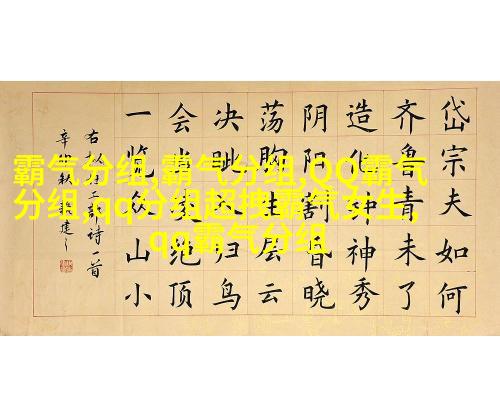 霸气分组,霸气分组,QQ霸气
分组,qq分组超拽霸气女生,
qq霸气分组
岱宗夫如何
齐鲁青未了
造化钟神秀
阴阳割昏晓
荡胸生层云
决眦入归鸟
会当凌绝顶
一览众山小
右杜工部诗一首